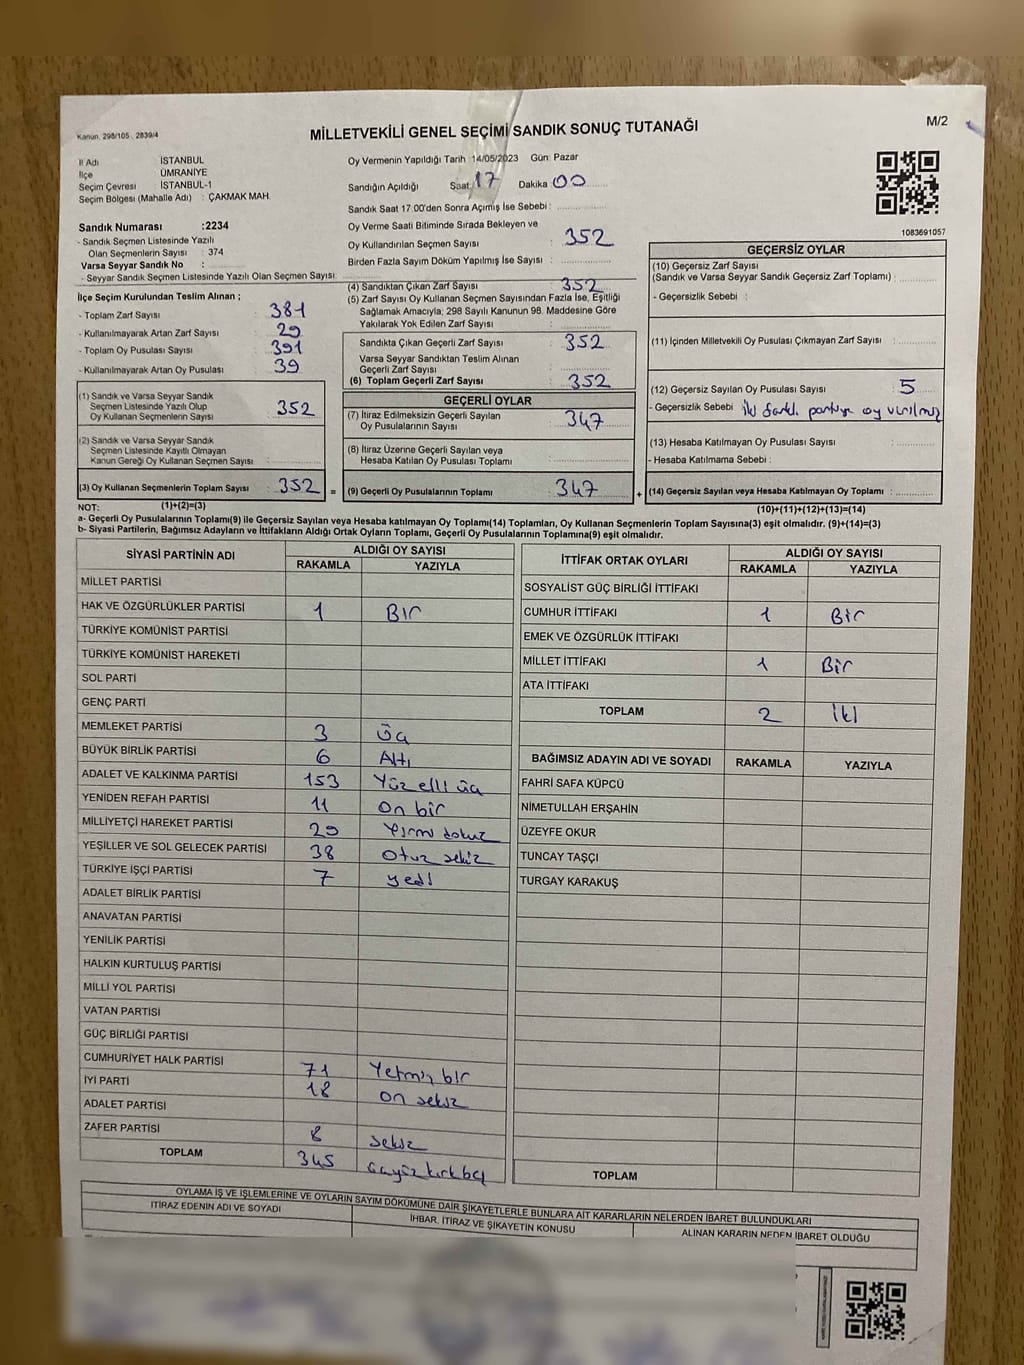 Kanun, 298/105 , 2839/4
MİLLETVEKİLİ GENEL SEÇİMİ SANDIK SONUÇ TUTANAĞI
M/2
İl Adı İSTANBUL
İlçe ÜMRANİYE
Seçim Çevresi : İSTANBUL-1
Seçim Bölgesi (Mahalle Adı) : ÇAKMAK MAH.
Sandık Numarası :2234
- Sandık Seçmen Listesinde Yazılı
Olan Seçmenlerin Sayısı : 374
Varsa Seyyar Sandık No :
- Seyyar Sandık Seçmen Listesinde Yazılı Olan Seçmen Sayısı:
Oy Vermenin Yapıldığı Tarih 14/05/2023 Gün: Pazar
Sandığın Açıldığı Saat: 17 Dakika 00
Sandık Saat 17.00'den Sonra Açımış İse Sebebi :
Oy Verme Saati Bitiminde Sırada Bekleyen ve
Oy Kullandırılan Seçmen Sayısı : 352
Birden Fazla Sayım Döküm Yapılmış İse Sayısı :
1083691057
İlçe Seçim Kurulundan Teslim Alınan ;
- Toplam Zarf Sayısı 381
- Kullanılmayarak Artan Zarf Sayısı 29
- Toplam Oy Pusulası Sayısı 391
- Kullanılmayarak Artan Oy Pusulası 39
(1) Sandık ve Varsa Seyyar Sandık
Seçmen Listesinde Yazılı Olup
Oy Kullanan Seçmenlerin Sayısı : 352
(2) Sandık ve Varsa Seyyar Sandık
Seçmen Listesinde Kayıtlı Olmayan
Kanun Gereği Oy Kullanan Seçmen Sayısı :
(3) Oy Kullanan Seçmenlerin Toplam Sayısı : 352 =
(1)+(2)=(3)
(4) Sandıktan Çıkan Zarf Sayısı : 352
(5) Zarf Sayısı Oy Kullanan Seçmen Sayısından Fazla İse, Eşitliği
Sağlamak Amacıyla; 298 Sayılı Kanunun 98. Maddesine Göre
Yakılarak Yok Edilen Zarf Sayısı :
Sandıkta Çıkan Geçerli Zarf Sayısı : 352
Varsa Seyyar Sandıktan Teslim Alınan
Geçerli Zarf Sayısı :
(6) Toplam Geçerli Zarf Sayısı : 352
GEÇERLİ OYLAR
(7) İtiraz Edilmeksizin Geçerli Sayılan
Oy Pusulalarının Sayısı : 347
(8) İtiraz Üzerine Geçerli Sayılan veya
Hesaba Katılan Oy Pusulası Toplamı :
(9) Geçerli Oy Pusulalarının Toplamı : 347 +
GEÇERSİZ OYLAR
(10) Geçersiz Zarf Sayısı
(Sandık ve Varsa Seyyar Sandık Geçersiz Zarf Toplamı) :
- Geçersizlik Sebebi :
(11) İçinden Milletvekili Oy Pusulası Çıkmayan Zarf Sayısı :
(12) Geçersiz Sayılan Oy Pusulası Sayısı : 5
- Geçersizlik Sebebi : İki farklı partiye oy verilmiş
(13) Hesaba Katılmayan Oy Pusulası Sayısı :
- Hesaba Katılmama Sebebi :
(14) Geçersiz Sayılan veya Hesaba Katılmayan Oy Toplamı :
(10)+(11)+(12)+(13)=(14)
NOT:
a- Geçerli Oy Pusulalarının Toplamı(9) ile Geçersiz Sayılan veya Hesaba katılmayan Oy Toplamı(14) Toplamları, Oy Kullanan Seçmenlerin Toplam Sayısına(3) eşit olmalıdır. (9)+(14)=(3)
b- Siyasi Partilerin, Bağımsız Adayların ve İttifakların Aldığı Ortak Oyların Toplamı, Geçerli Oy Pusulalarının Toplamına(9) eşit olmalıdır.
SİYASİ PARTİNİN ADI ALDIĞI OY SAYISI
RAKAMLA YAZIYLA
MİLLET PARTİSİ
HAK VE ÖZGÜRLÜKLER PARTİSİ 1 Bir
TÜRKİYE KOMÜNİST PARTİSİ
TÜRKİYE KOMÜNİST HAREKETİ
SOL PARTİ
GENÇ PARTİ
MEMLEKET PARTİSİ 3 Üç
BÜYÜK BİRLİK PARTİSİ 6 Altı
ADALET VE KALKINMA PARTİSİ 153 Yüz elli üç
YENİDEN REFAH PARTİSİ 11 On bir
MİLLİYETÇİ HAREKET PARTİSİ 29 Yirmi dokuz
YEŞİLLER VE SOL GELECEK PARTİSİ 38 Otuz sekiz
TÜRKİYE İŞÇİ PARTİSİ 7 yedi
ADALET BİRLİK PARTİSİ
ANAVATAN PARTİSİ
YENİLİK PARTİSİ
HALKIN KURTULUŞ PARTİSİ
MİLLİ YOL PARTİSİ
VATAN PARTİSİ
GÜÇ BİRLİĞİ PARTİSİ
CUMHURİYET HALK PARTİSİ 71 Yetmiş bir
İYİ PARTİ 18 on sekiz
ADALET PARTİSİ
ZAFER PARTİSİ 8 sekiz
TOPLAM 345 üçyüz kırk beş
İTTİFAK ORTAK OYLARI ALDIĞI OY SAYISI
RAKAMLA YAZIYLA
SOSYALİST GÜÇ BİRLİĞİ İTTİFAKI
CUMHUR İTTİFAKI 1 Bir
EMEK VE ÖZGÜRLÜK İTTİFAKI
MİLLET İTTİFAKI 1 Bir
ATA İTTİFAKI
TOPLAM 2 iki
BAĞIMSIZ ADAYIN ADI VE SOYADI RAKAMLA YAZIYLA
FAHRİ SAFA KÜPCÜ
NİMETULLAH ERŞAHİN
ÜZEYFE OKUR
TUNCAY TAŞÇI
TURGAY KARAKUŞ
TOPLAM
OYLAMA İŞ VE İŞLEMLERİNE VE OYLARIN SAYIM DÖKÜMÜNE DAİR ŞİKAYETLERLE BUNLARA AİT KARARLARIN NELERDEN İBARET BULUNDUKLARI
İTİRAZ EDENİN ADI VE SOYADI İHBAR, İTİRAZ VE ŞİKAYETİN KONUSU ALINAN KARARIN NEDEN İBARET OLDUĞU